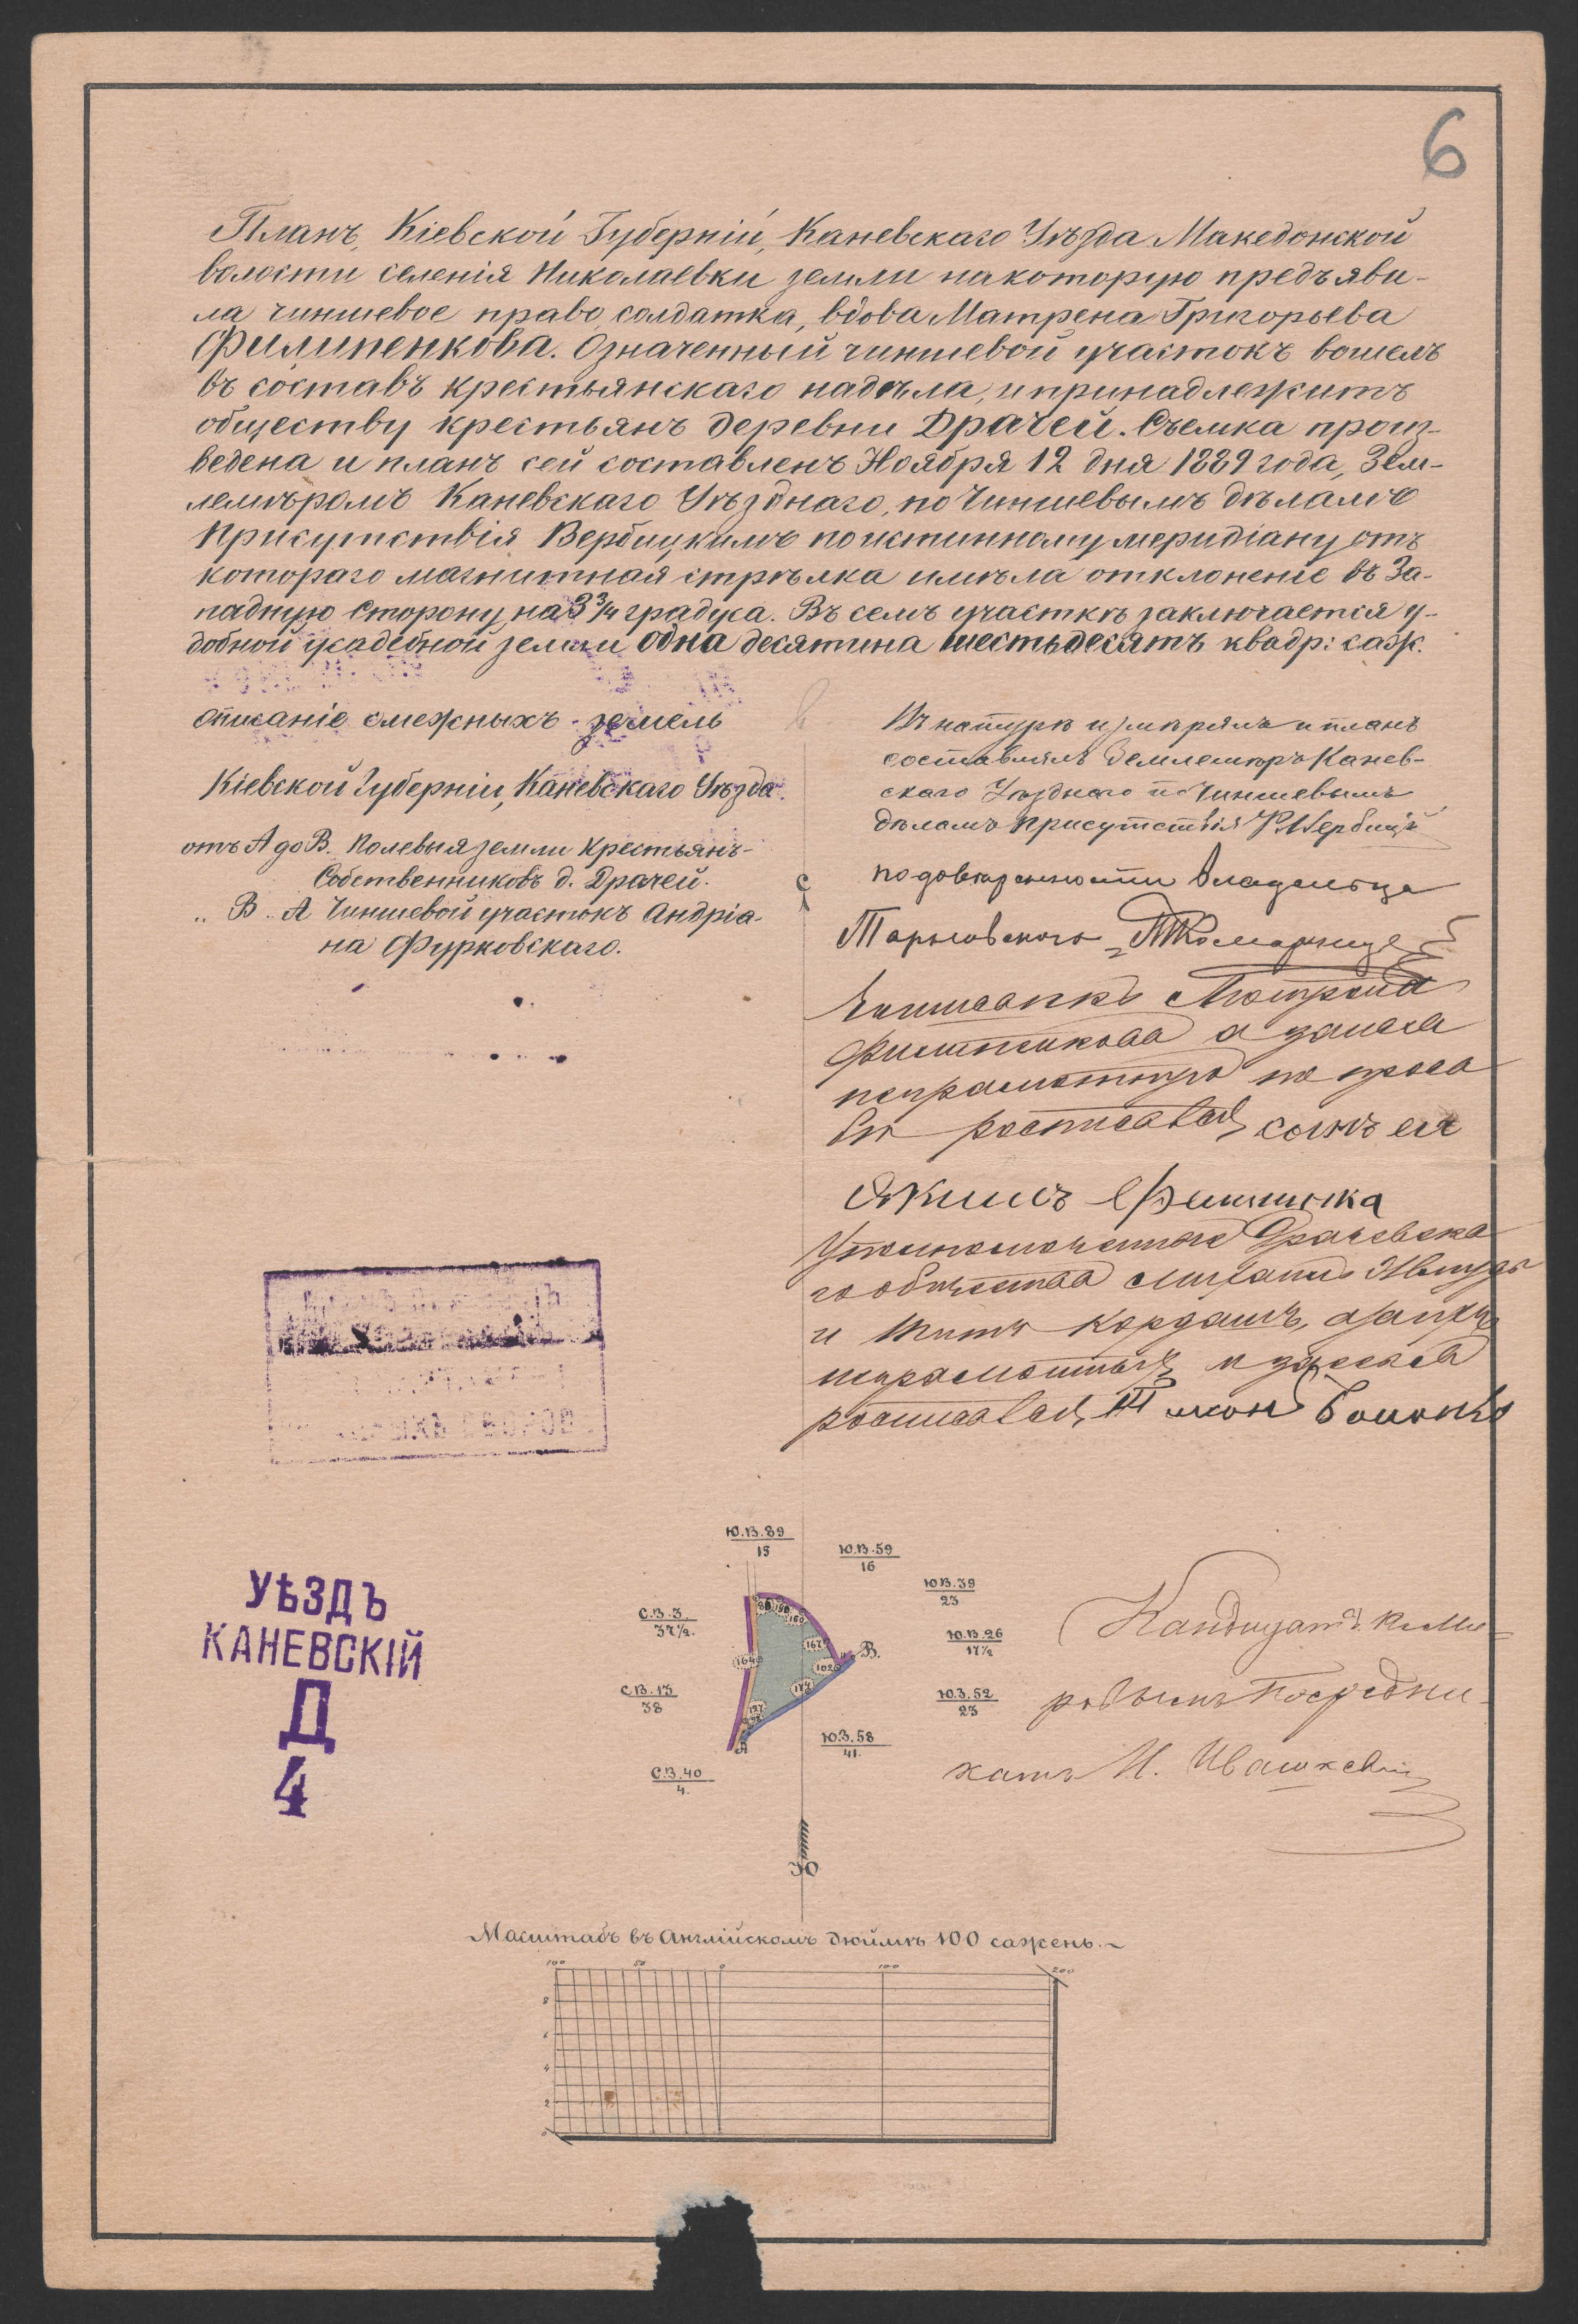 6
Планъ, Кіевской Губерніи, Каневскаго Уѣзда Македонской
волости селенія Николаевки земли на которую предъяви-
ла чиншевое право, солдатка, вдова Матрена Григорьева
Филипенкова. Означенный чиншевой участокъ вошелъ
въ составъ крестьянскаго надѣла, и принадлежитъ
обществу крестьянъ деревни Драчей. Съемка произ-
ведена и планъ сей составленъ Ноября 12 дня 1889 года, Зем-
лемѣромъ Каневскаго Уѣзднаго, по Чиншевымъ дѣламъ
Присутствія Вербицкимъ по истинному меридіану отъ
котораго магнитная стрѣлка имѣла отклоненіе въ За-
падную сторону на 3 3/4 градуса. Въ семъ участкѣ заключается у-
добной усадебной земли одна десятина шестьдесятъ квадр: саж.
Описаніе смежныхъ земель
Кіевской Губерніи, Каневскаго Уѣзда.
отъ А до В. Полевыя земли крестьянъ-
Собственниковъ д. Драчей.
„ В „ А Чиншевой участокъ Андріа-
на Фурковскаго.
Въ натурѣ измѣрялъ и планъ
составлялъ Землемѣръ Канев-
скаго Уѣзднаго по Чиншевымъ
дѣламъ Присутствія
по довѣренности владельца
Тарновского
С
Матрена
а за нея
неграмотную по прозбѣ
ея росписався сынъ ея
Якимъ
Уполномоченные Драчевска
го общества
и Титъ Кардашъ, а за нихъ
неграмотныхъ
росписався
УѢЗДЪ
КАНЕВСКІЙ
Д
4
Ю.В.89
15
Ю.В.59
16
Ю.В.39
23
Ю.В.26
17½
Ю.З.52
23
Ю.З.58
41.
С.В.3.
37½.
С.В.13
38
С.В.40
4.
164
167
102
174
127
В.
А
Кандидатъ къ Ми-
ровымъ Посредни-
камъ И. Ивашкевичъ
Ю
Масштабъ въ Англійскомъ дюймѣ 100 сажень.
100 50 0 100 200
8
6
4
2
0